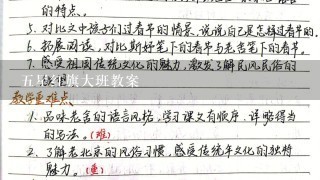 的特点。
5. 对比文中孩子们过春节的情景,说说自己是怎样过春节的。
6. 拓展阅读,对比斯好笔下的春节与老舍笔下的春节。
7. 感受祖国传统文化的魅力,激发了解民风民俗的
五星红旗大班教案
教学重难点
1. 品味老舍的语言风格,学习课文有顺序、详略得当
的写法。(难)
2. 了解老北京的风俗习惯,感受传统年文化的独特
魅力。(重)